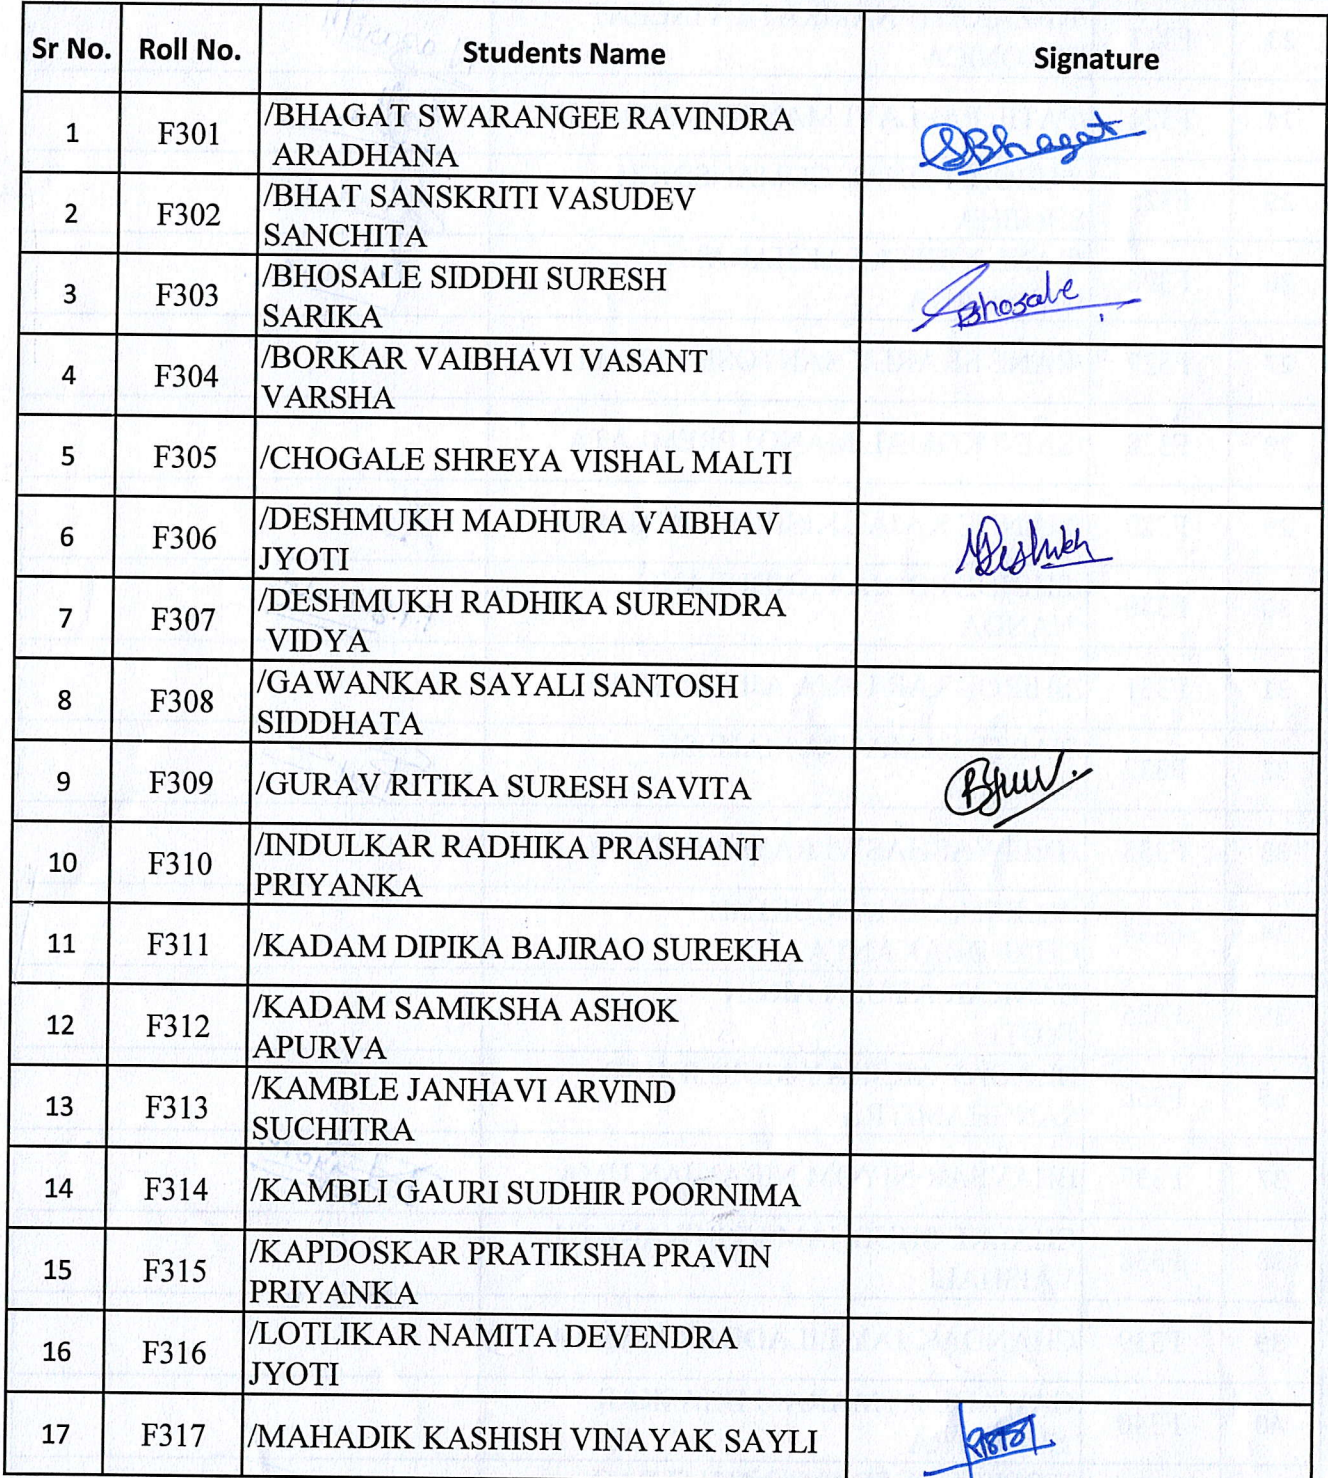 Sr No. Roll No. Students Name Signature
1 F301 /BHAGAT SWARANGEE RAVINDRA
ARADHANA SBhagat
2 F302 /BHAT SANSKRITI VASUDEV
SANCHITA
3 F303 /BHOSALE SIDDHI SURESH
SARIKA Bhosale
4 F304 /BORKAR VAIBHAVI VASANT
VARSHA
5 F305 /CHOGALE SHREYA VISHAL MALTI
6 F306 /DESHMUKH MADHURA VAIBHAV
JYOTI
7 F307 /DESHMUKH RADHIKA SURENDRA
VIDYA
8 F308 /GAWANKAR SAYALI SANTOSH
SIDDHATA
9 F309 /GURAV RITIKA SURESH SAVITA
10 F310 /INDULKAR RADHIKA PRASHANT
PRIYANKA
11 F311 /KADAM DIPIKA BAJIRAO SUREKHA
12 F312 /KADAM SAMIKSHA ASHOK
APURVA
13 F313 /KAMBLE JANHAVI ARVIND
SUCHITRA
14 F314 /KAMBLI GAURI SUDHIR POORNIMA
15 F315 /KAPDOSKAR PRATIKSHA PRAVIN
PRIYANKA
16 F316 /LOTLIKAR NAMITA DEVENDRA
JYOTI
17 F317 /MAHADIK KASHISH VINAYAK SAYLI